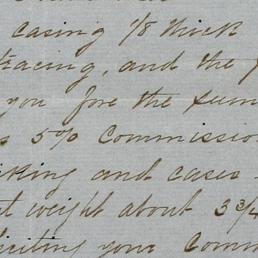 casing 1/8 thick
tracing, and the
you for the sum
5% Commission
king and cases -
t weight about 3 3/4
iciting your Comm